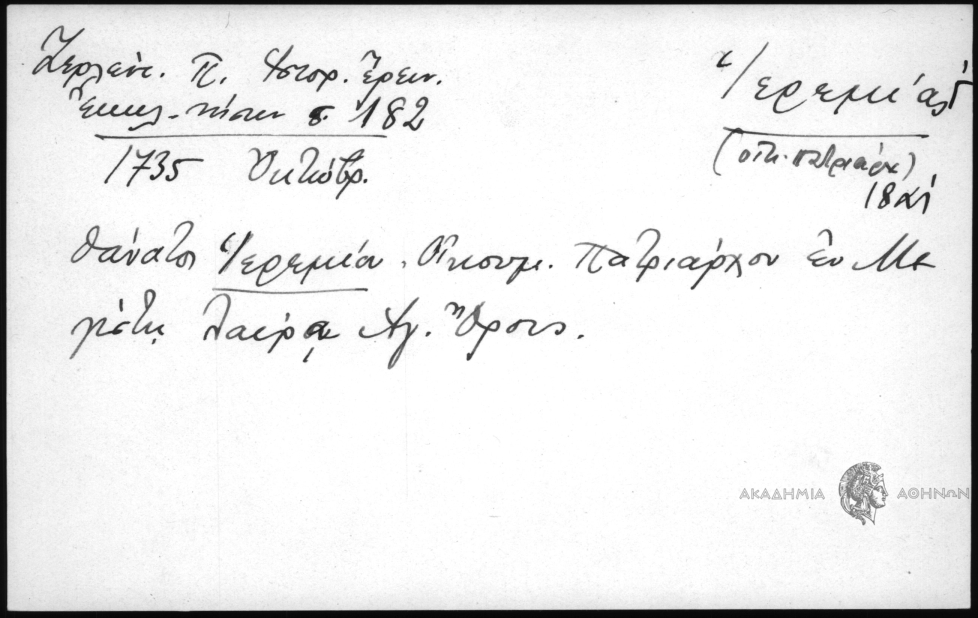 Ζερλέντ. Π. Ἱστορ. Ἔρευν.
Ἐκκλ. νήσων σ. 182
1735 Ὀκτώβρ.
Ἱερεμίας Γ'
(οἰκ. πατριάρχ)
18αί
Θάνατος Ἱερεμίου Οἰκουμ. Πατριάρχου ἐν Με
γίστῃ Λαύρᾳ Ἁγ. Ὄρους.
ΑΚΑΔΗΜΙΑ ΑΘΗΝΩΝ